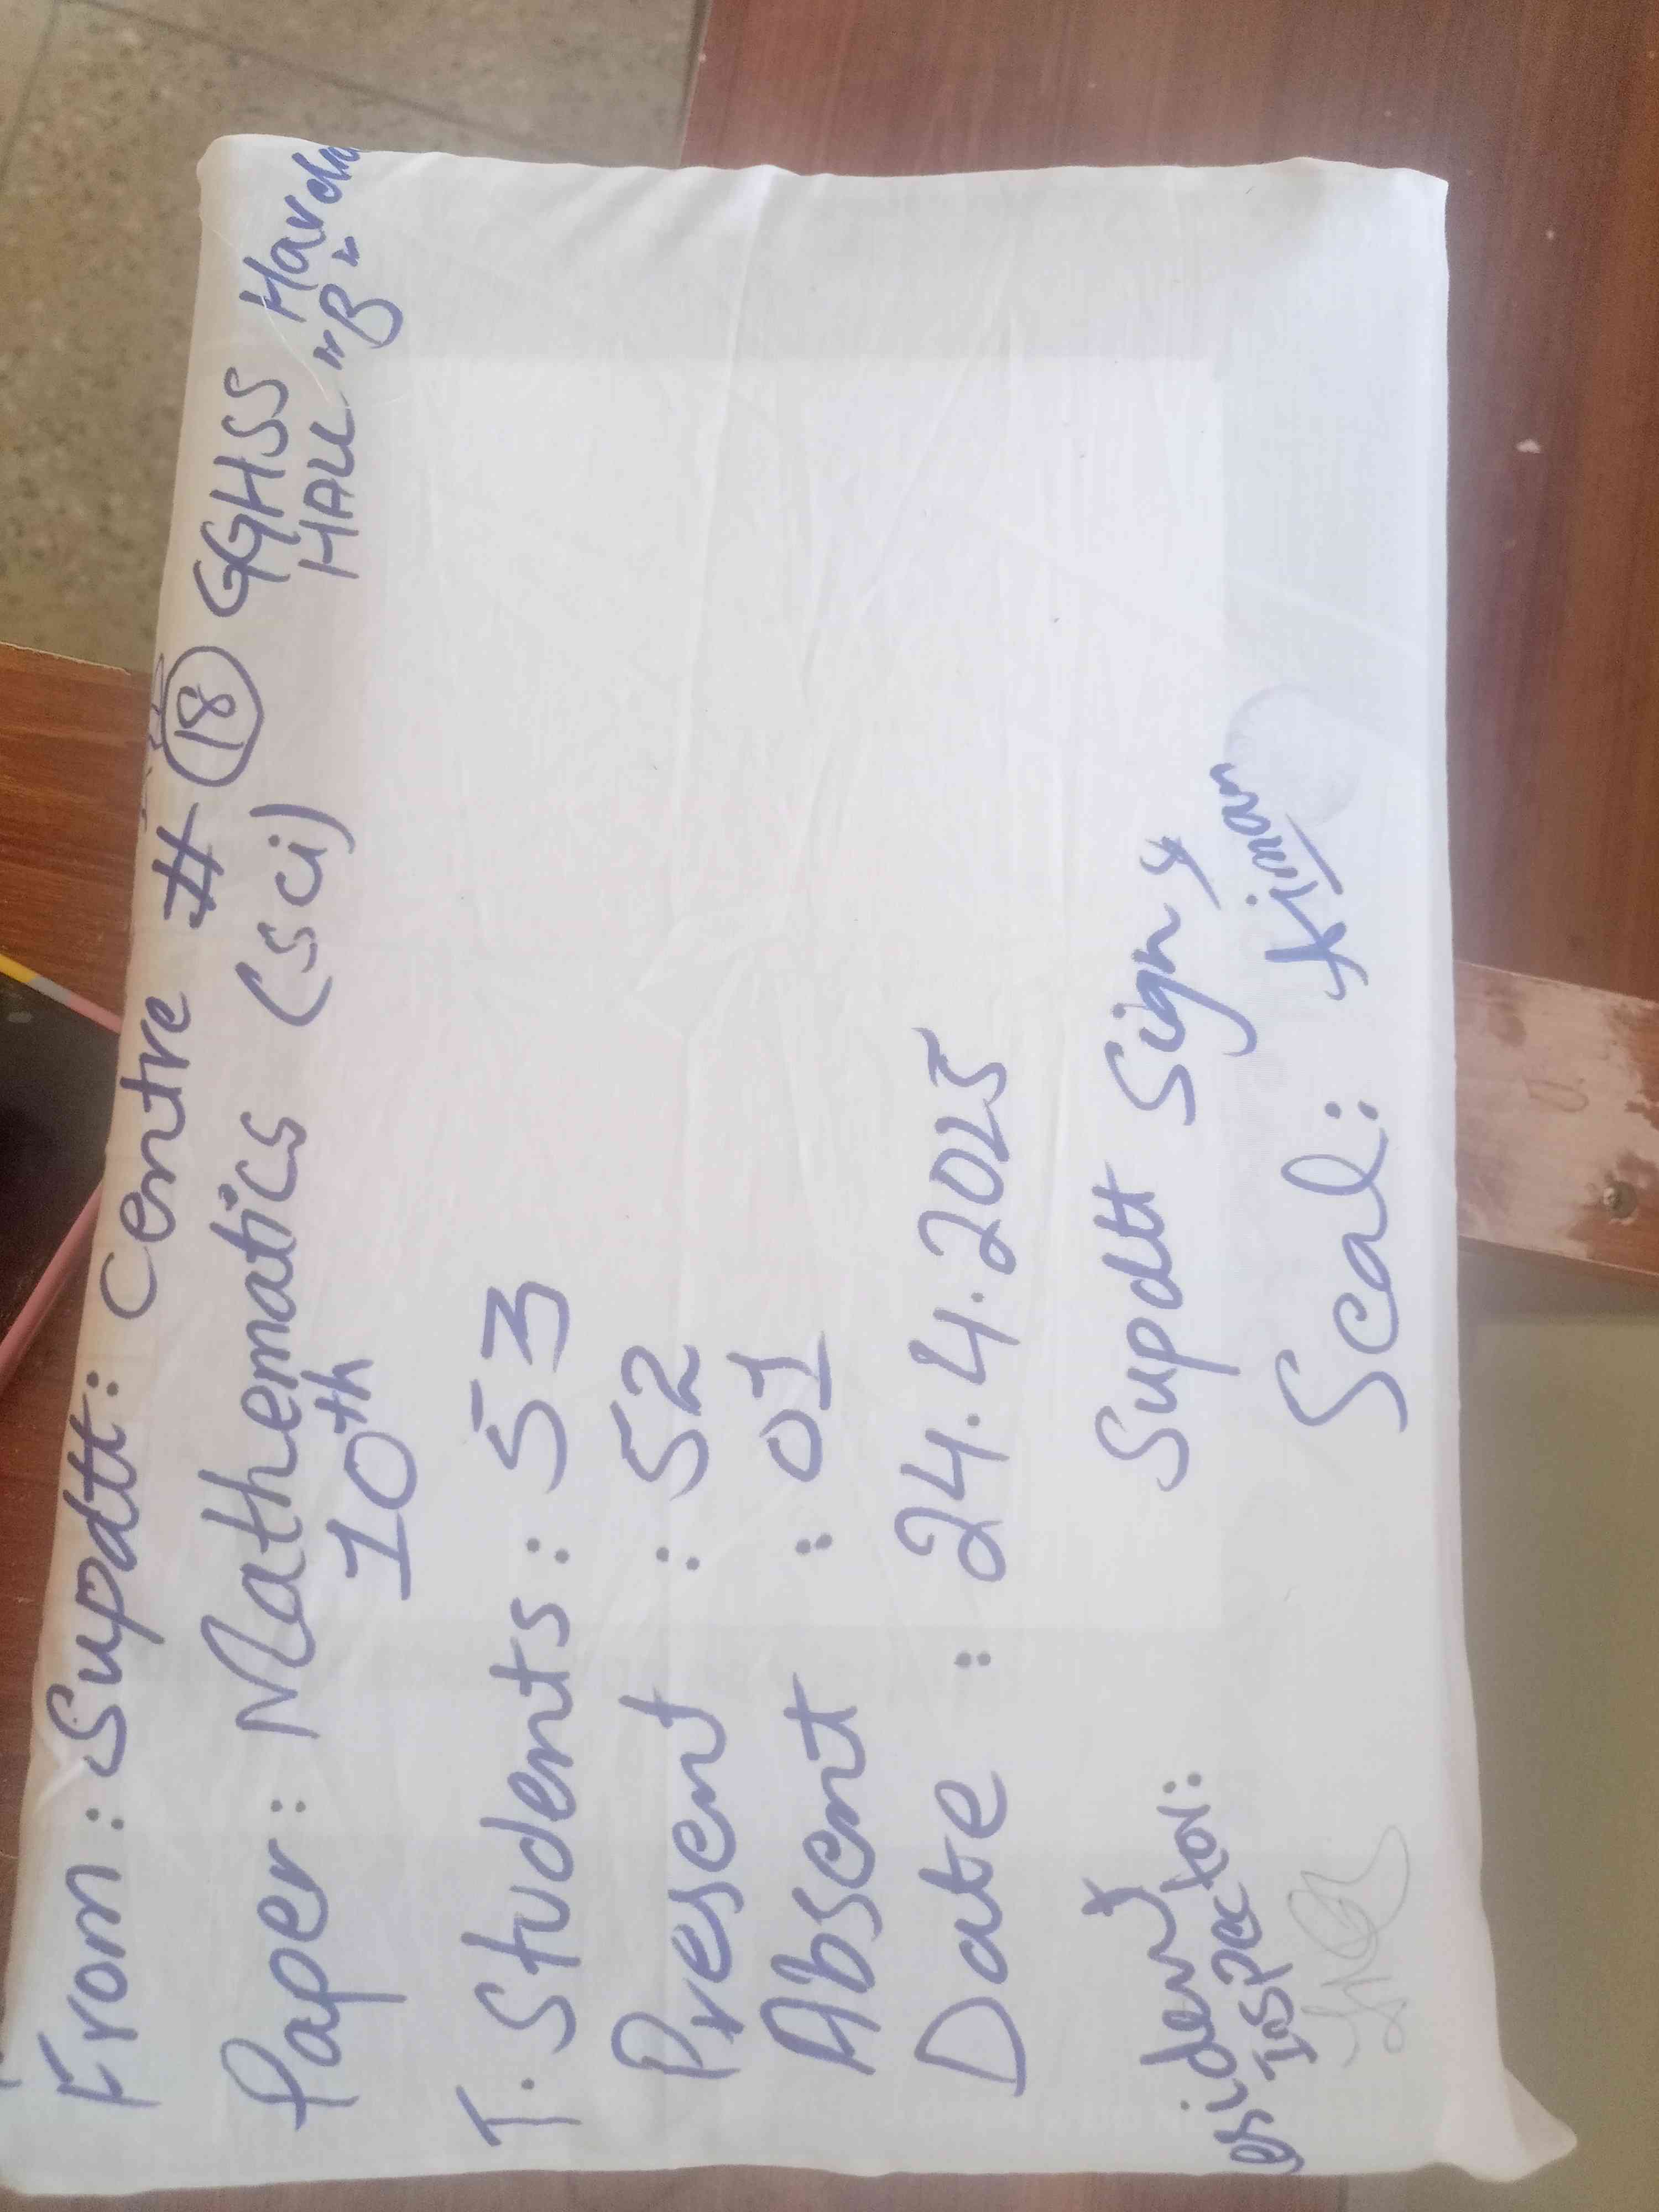 From : Supdtt: Centre # 18 GGHSS
HALL "B"
Paper: Mathematics (sci)
10th
T. Students : 53
Present : 52
Absent : 01
Date : 24.4.2025
Supdtt Sign &
Inspector:
Seal: